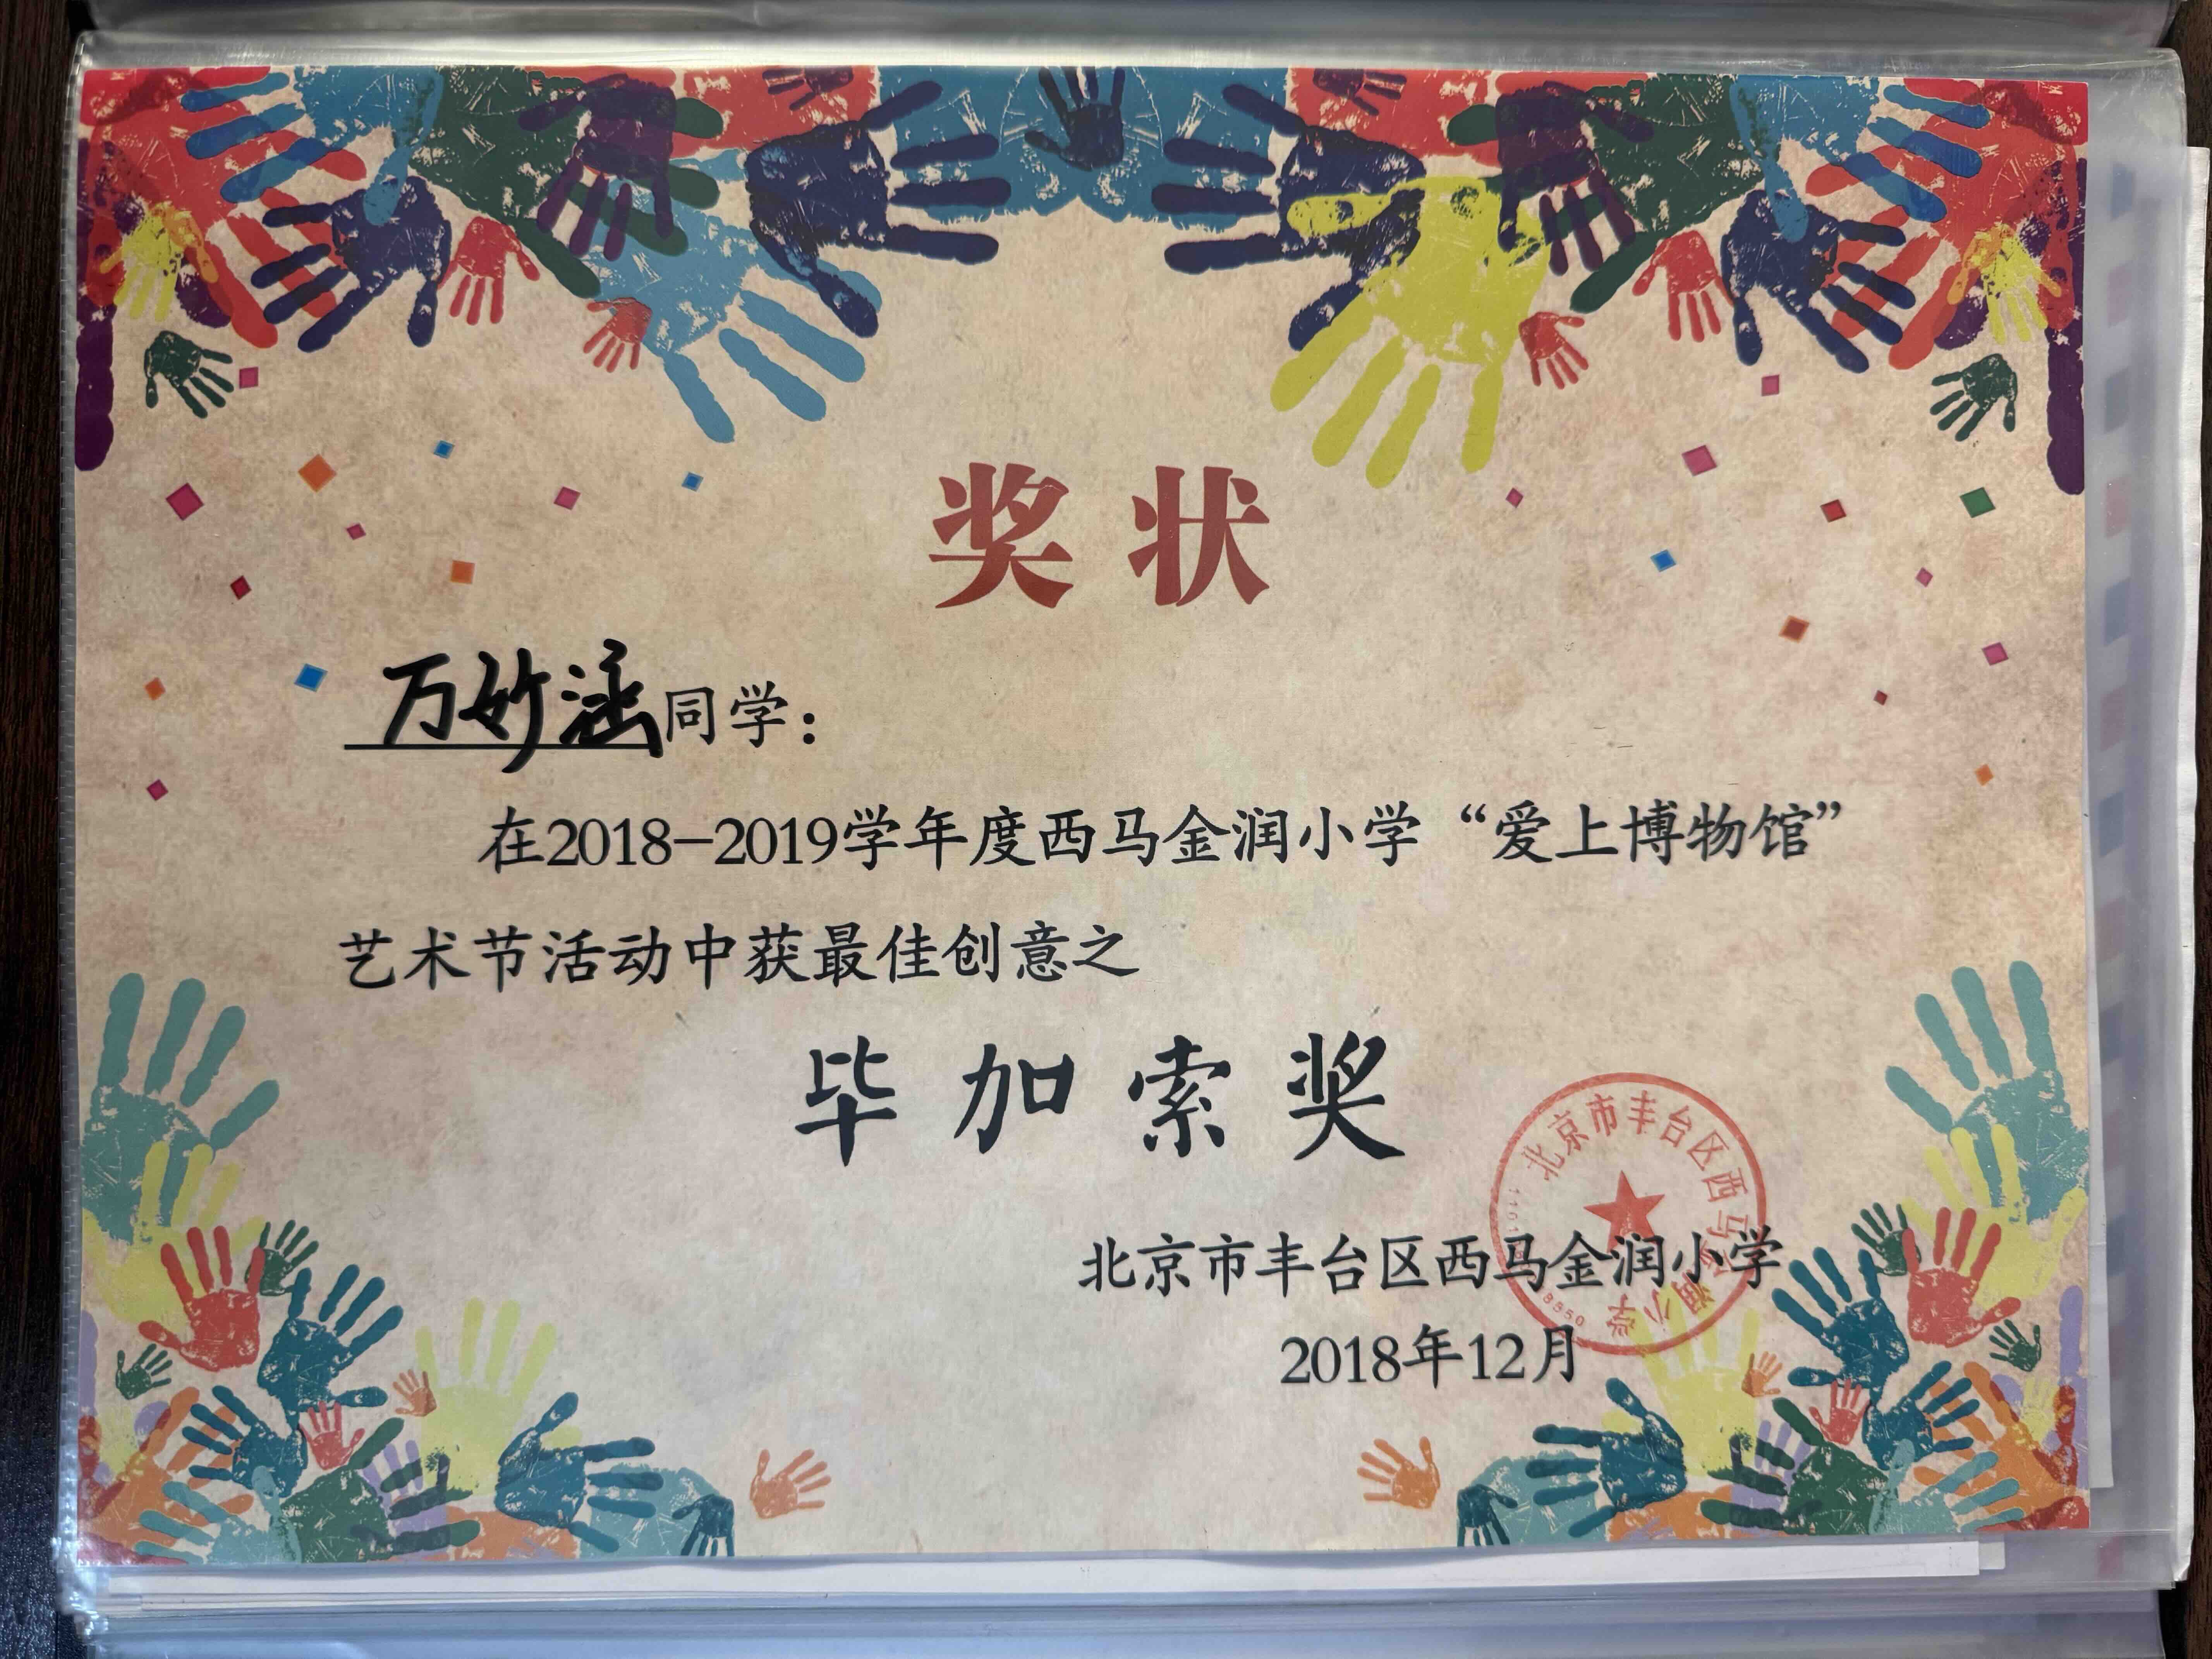 奖状
万妙涵同学：
在2018-2019学年度西马金润小学“爱上博物馆”
艺术节活动中获最佳创意之
毕加索奖
北京市丰台区西马金润小学
北京市丰台区西马金润小学
2018年12月